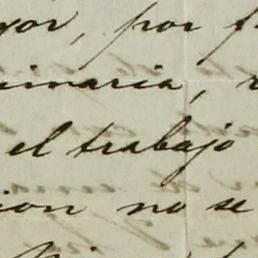 yor, por f
inaria, r
el trabajo
ion no se